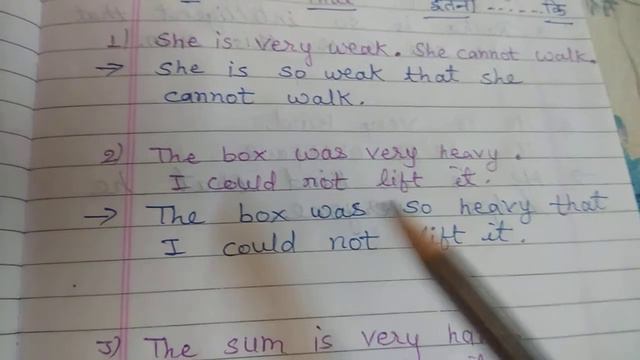 इतना ...... कि
1) She is very weak. She cannot walk.
→ She is so weak that she
cannot walk.
2) The box was very heavy.
I could not lift it.
→ The box was so heavy that
I could not lift it.
3) The sum is very